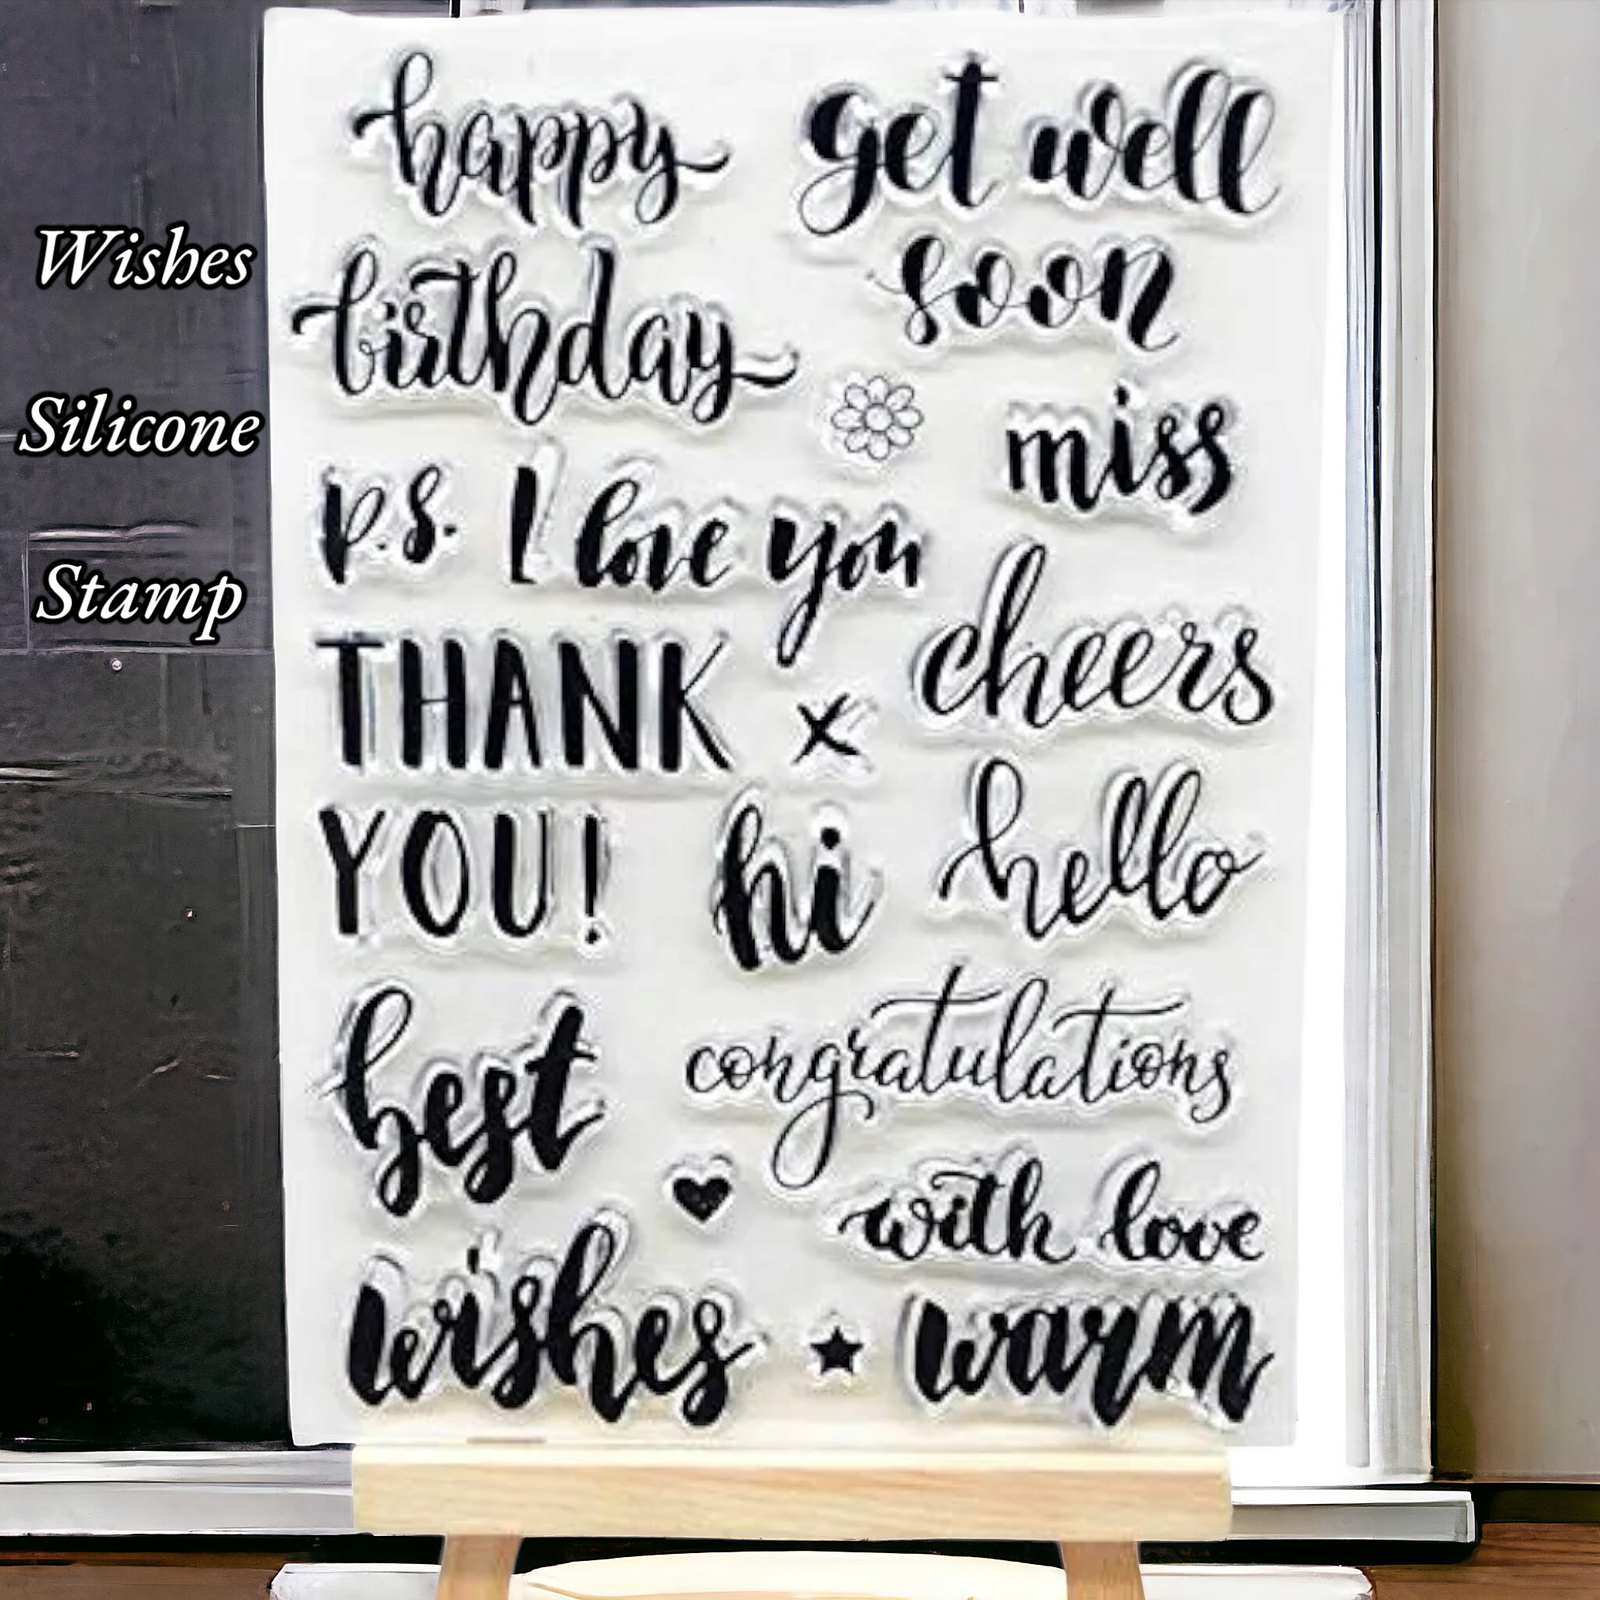 Wishes
Silicone
Stamp
happy
birthday
get well
soon
miss
p.s. I love you
THANK
YOU!
x
cheers
hi
hello
best
wishes
congratulations
with love
warm